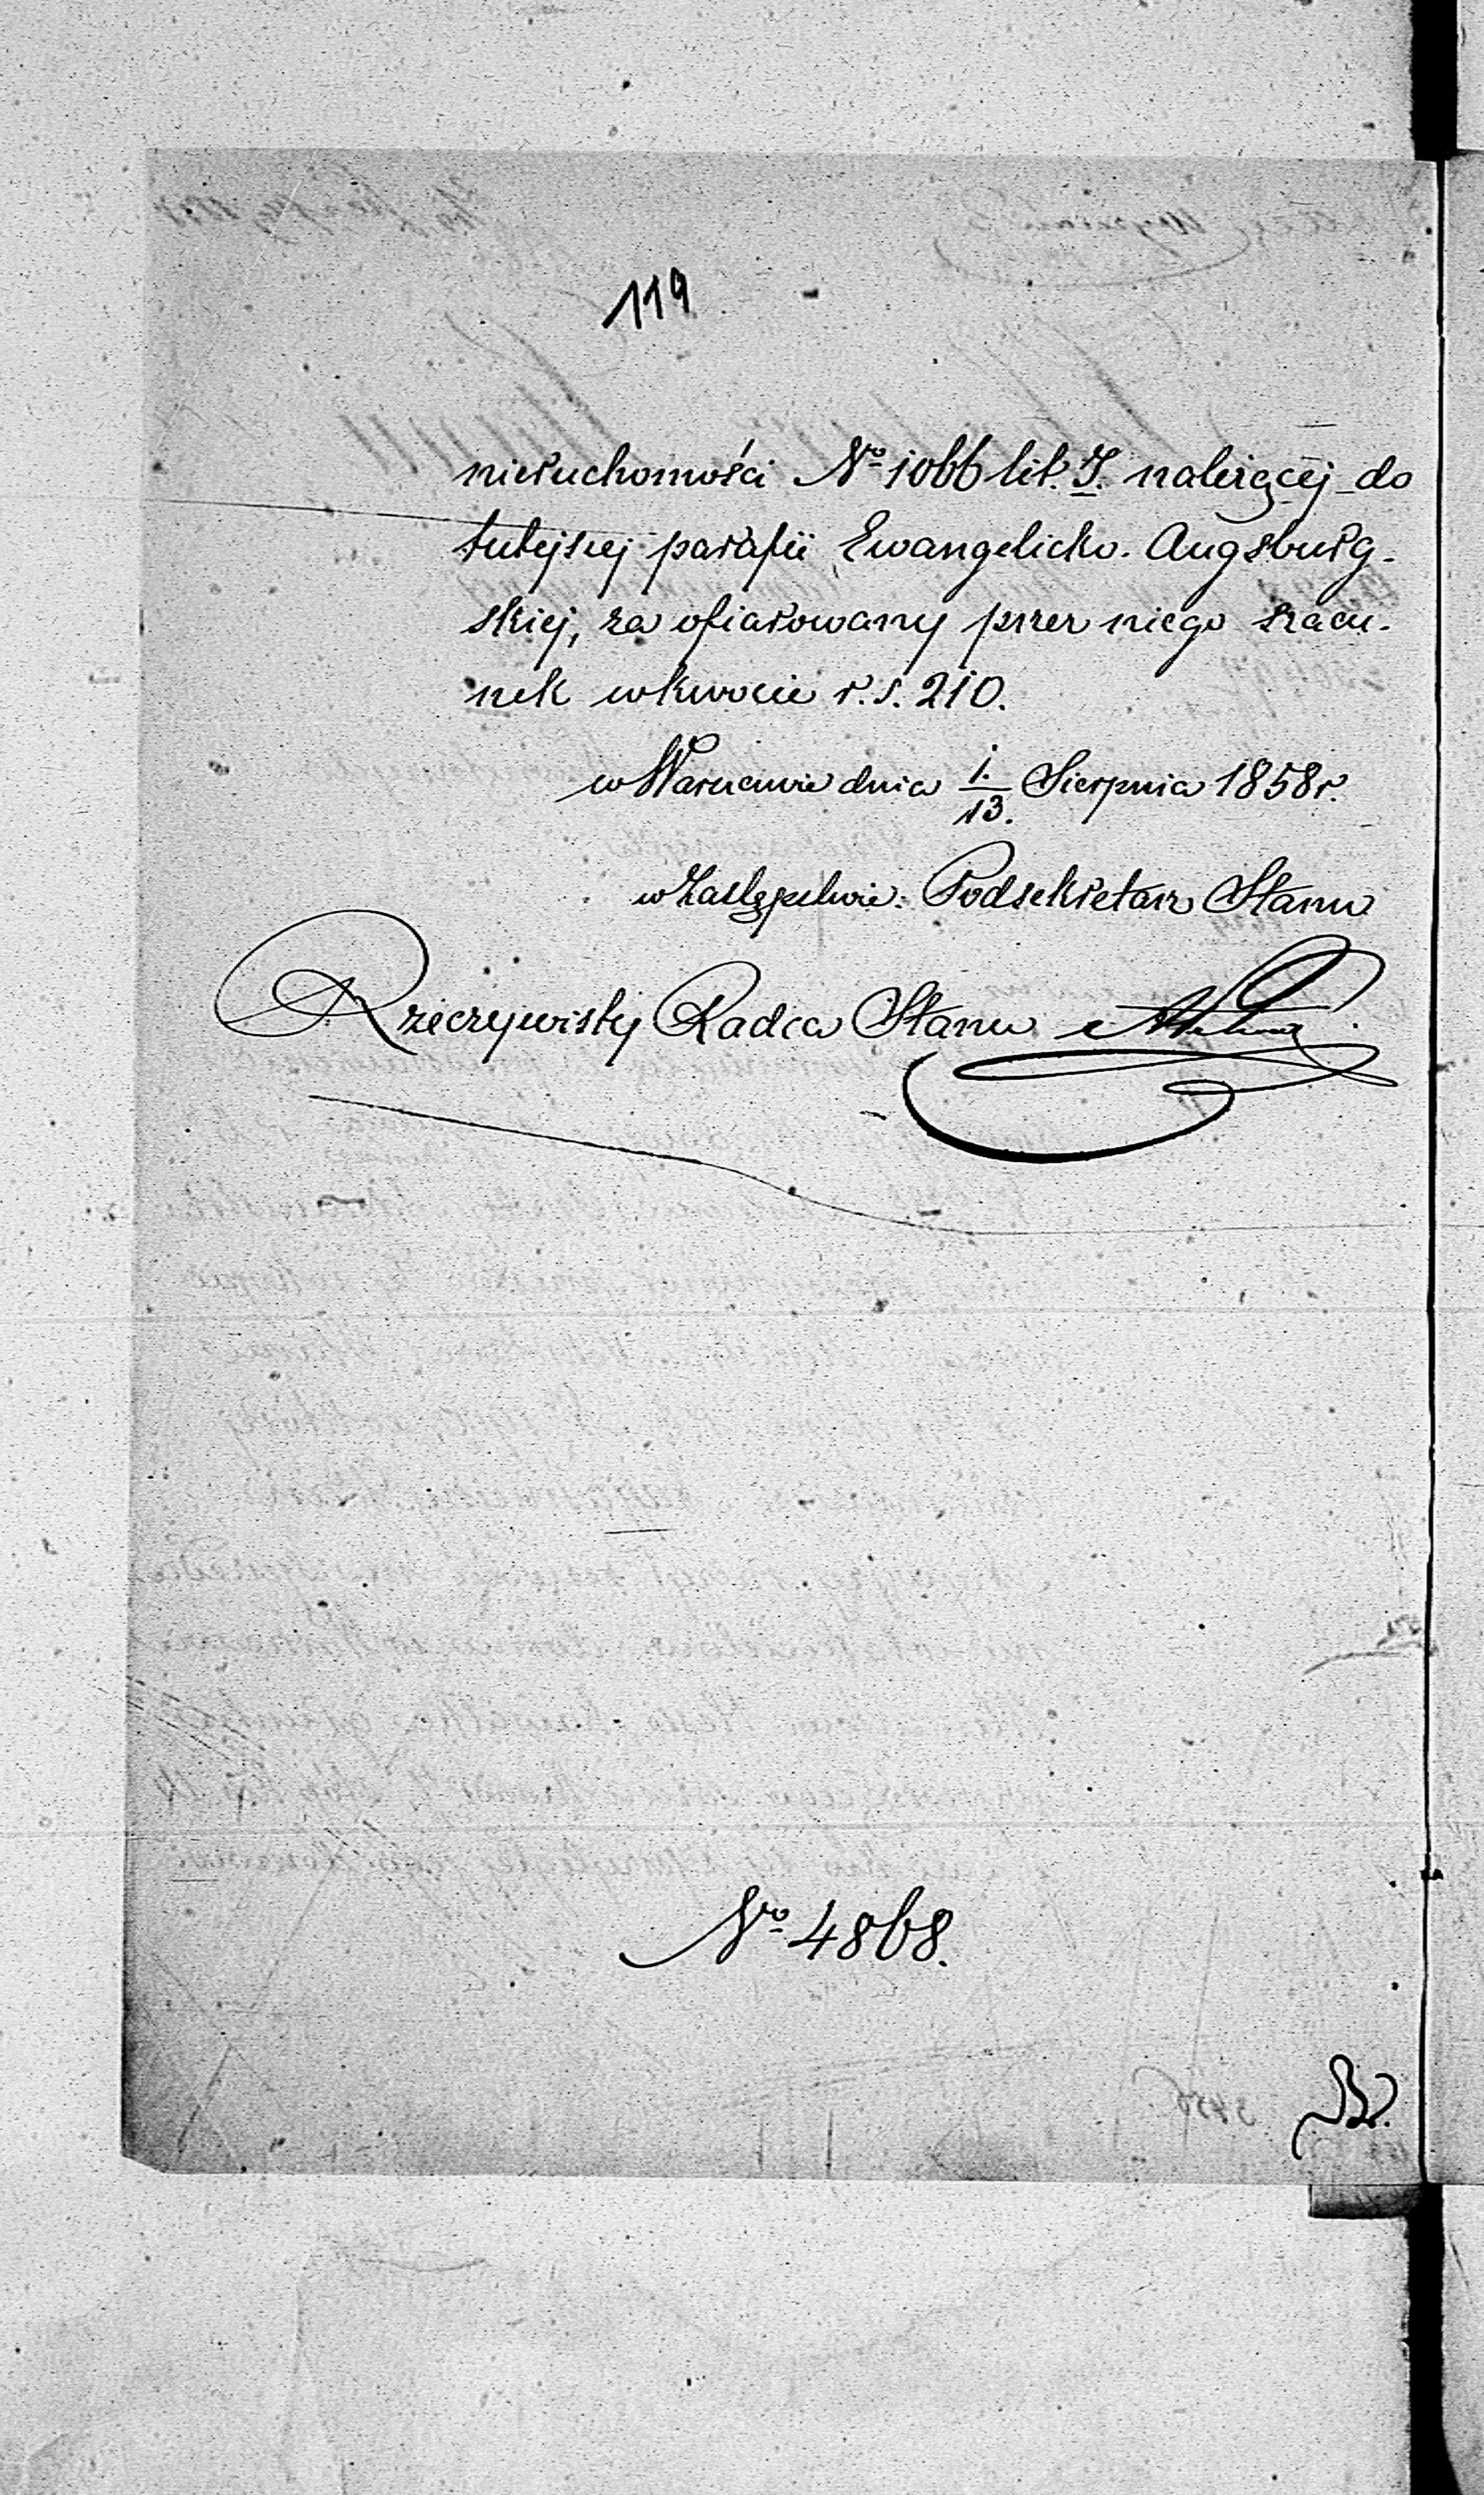 119
nieruchomości No 1066 lit. I. należącéj do
tutejszej parafii Ewangelicko-Augsburg-
skiej, za ofiarowany przez niego szacu-
nek w kwocie r.s. 210.
w Warszawie dnia 1./13. Sierpnia 1858 r.
w Zastępstwie: Podsekretarz Stanu
Rzeczywisty Radca Stanu
No 4868.